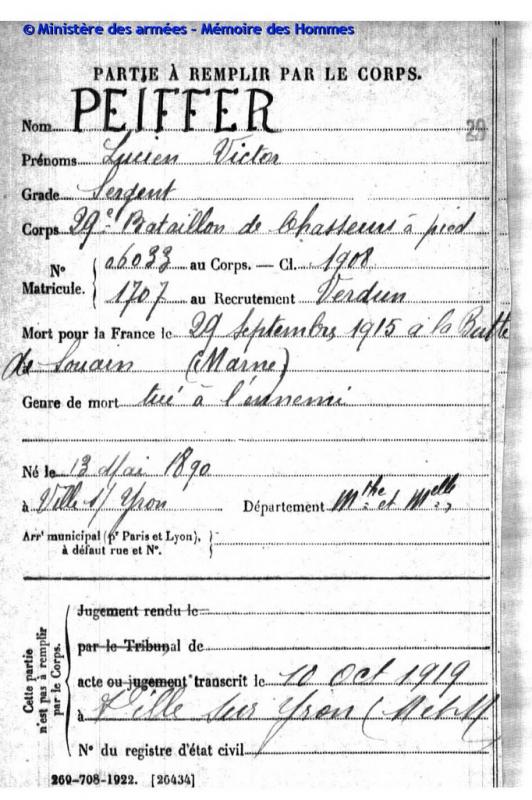 © Ministère des armées - Mémoire des Hommes
PARTIE À REMPLIR PAR LE CORPS.
Nom PEIFFER
29
Prénoms Lucien Victor
Grade Sergent
Corps 29e Bataillon de Chasseurs à pied
N° Matricule. { 06033 au Corps. — Cl. 1908
1707 au Recrutement Verdun
Mort pour la France le 29 Septembre 1915 à la Butte
de Souain (Marne)
Genre de mort tué à l'ennemi
Né le 13 Mai 1890
à Ville s/ Yron Département Mthe et Melle
Arrt municipal (pr Paris et Lyon),
à défaut rue et N°.
Cette partie n'est pas à remplir par le Corps.
Jugement rendu le
par le Tribunal de
acte ou jugement transcrit le 10 Oct 1919
à Ville sur Yron (M et M
N° du registre d'état civil
269-708-1922. [26434]